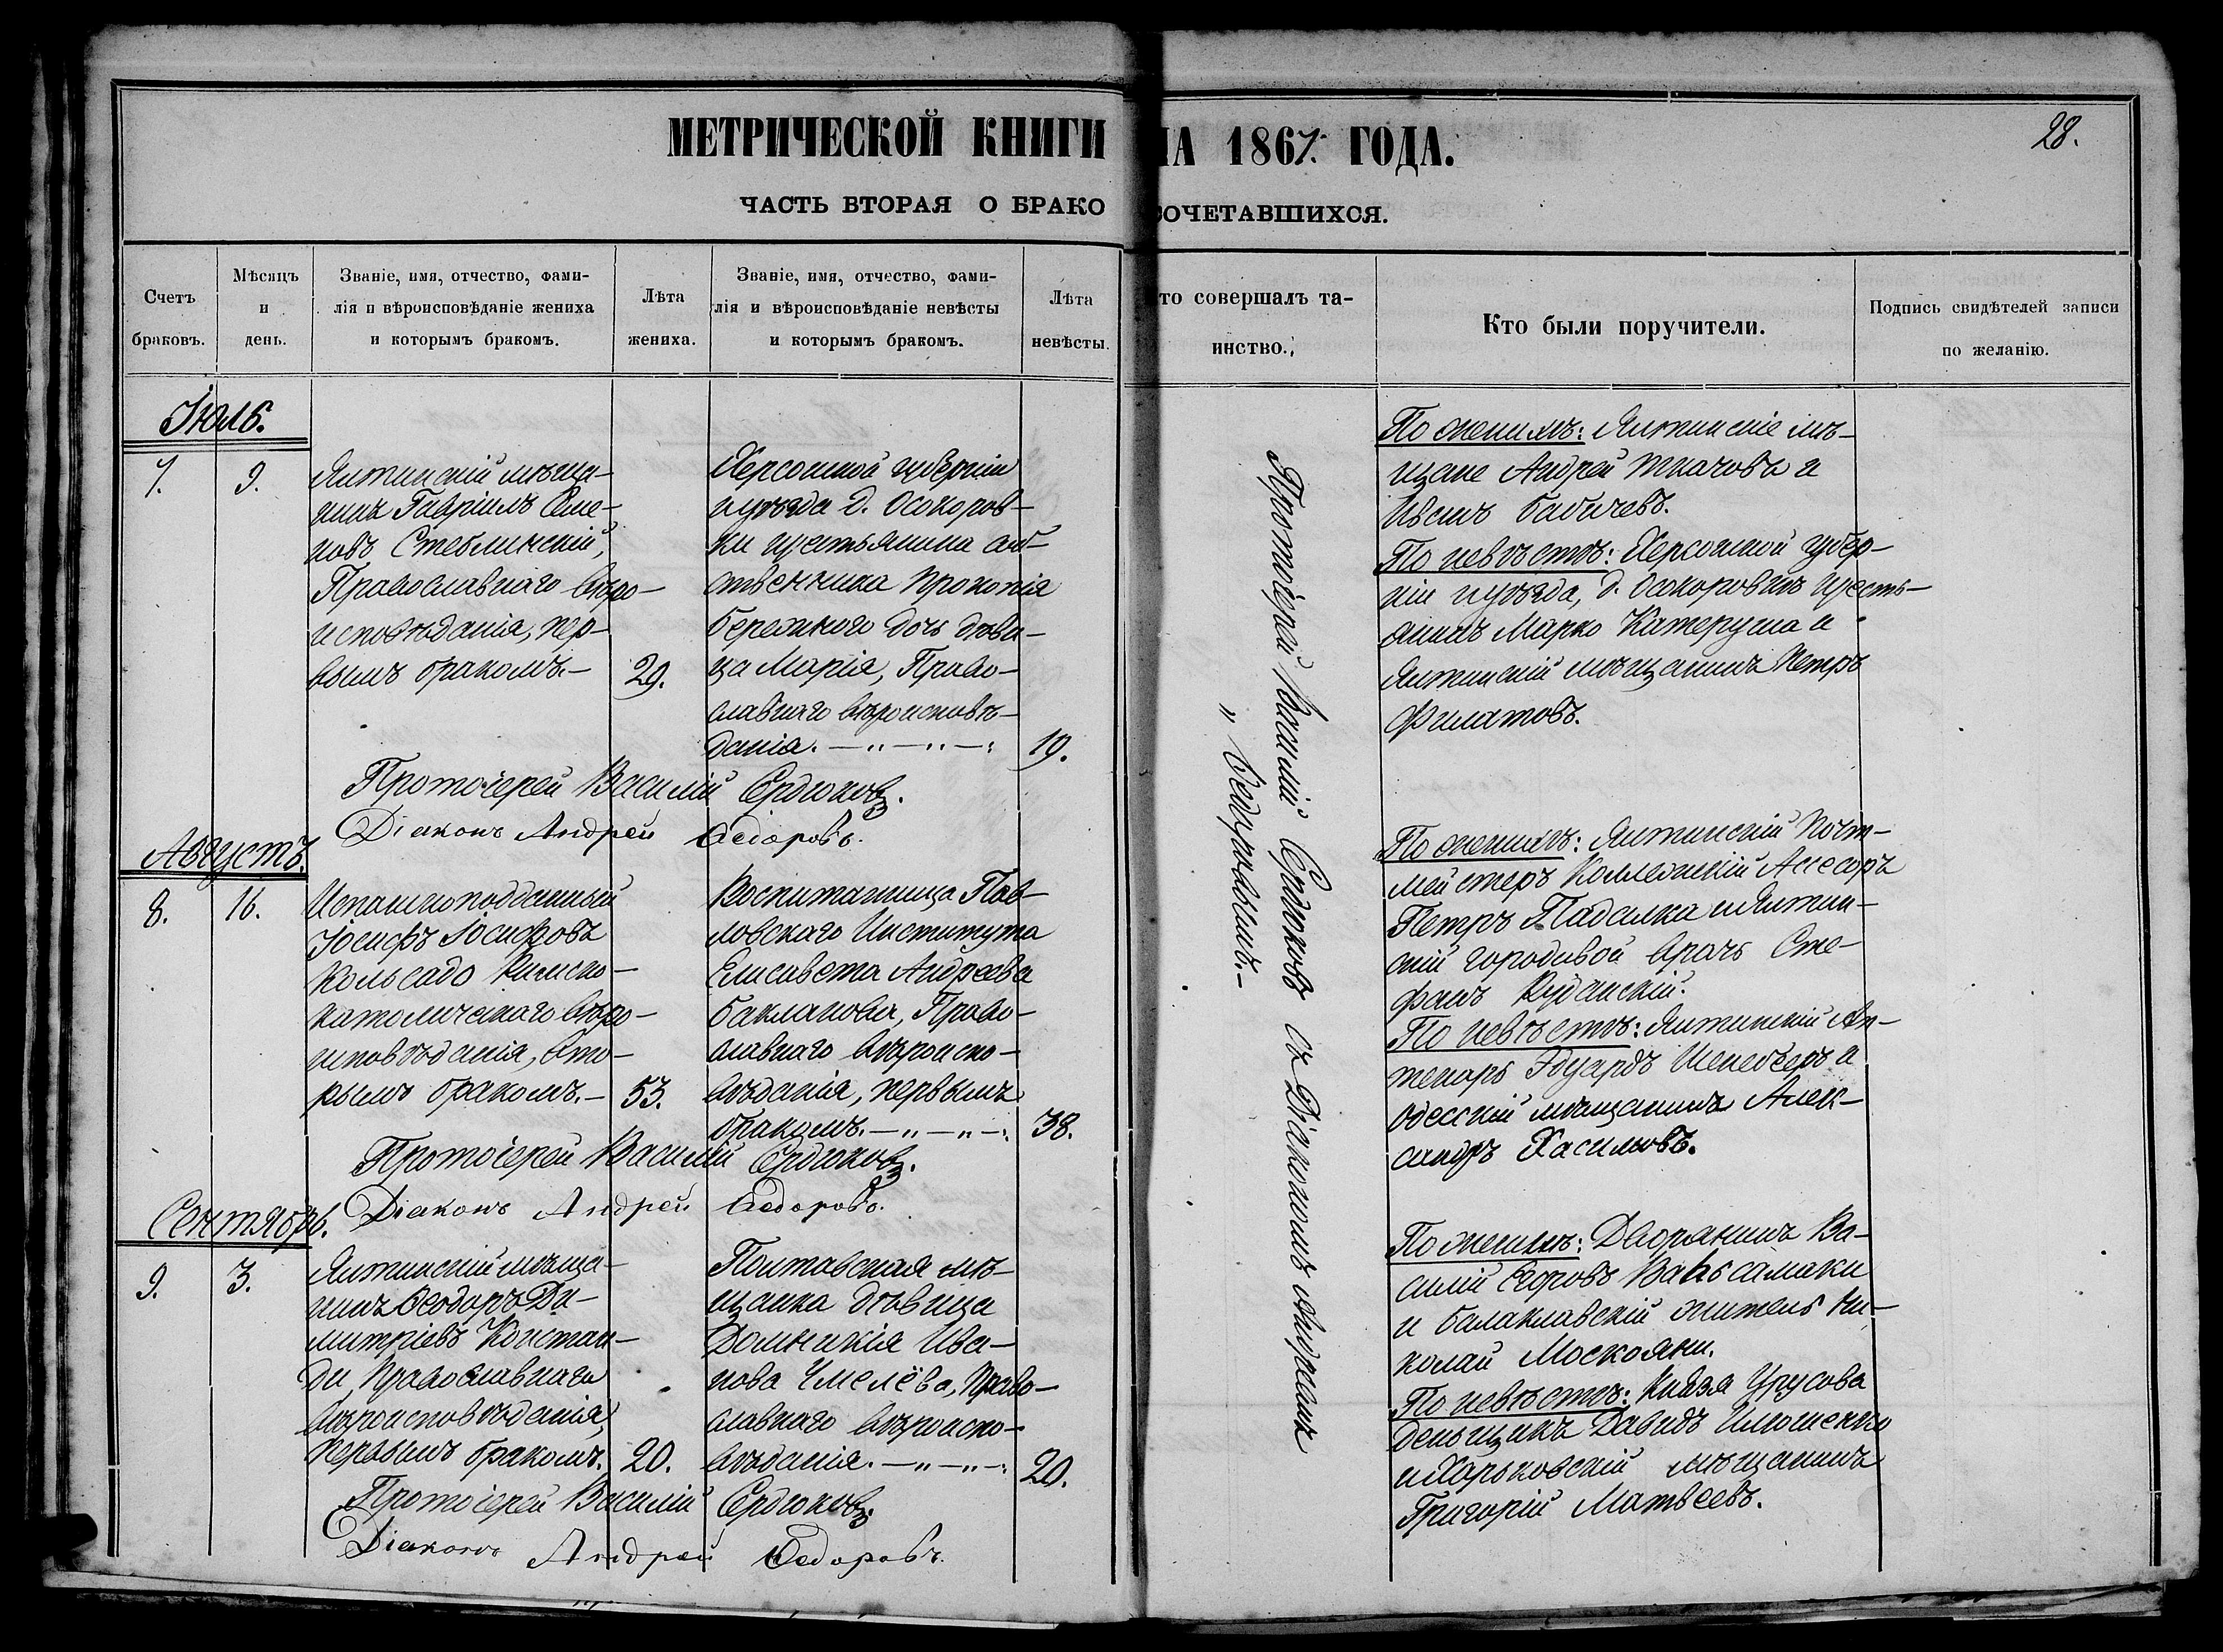 МЕТРИЧЕСКОЙ КНИГИ НА 1867. ГОДА.
28.
ЧАСТЬ ВТОРАЯ О БРАКОСОЧЕТАВШИХСЯ.
Счетъ браковъ.
Мѣсяцъ и день.
Званіе, имя, отчество, фами-
лія и вѣроисповѣданіе жениха
и которымъ бракомъ.
Лѣта жениха.
Званіе, имя, отчество, фами-
лія и вѣроисповѣданіе невѣсты
и которымъ бракомъ.
Лѣта невѣсты.
то совершалъ та-
инство.
Кто были поручители.
Подпись свидѣтелей записи
по желанію.
Іюль.
7.
9.
Ялтинскій мѣща-
нинъ Гавріилъ Сте-
новъ Стеблинскій,
Православнаго вѣро-
исповѣданія, пер-
вымъ бракомъ.-
29.
Херсонской губерніи
и уѣзда д. Осокоров-
ки крестьянина соб-
ственника Прокопія
Бережного дочь дѣви-
ца Марія, Право-
славнаго вѣроисповѣ-
данія. - " - " - :
19.
По женихѣ: Ялтинскіе мѣ-
щане Андрей Ткачовъ и
Иванъ Бабичевъ.
По невѣстѣ: Херсонской губер-
ніи и уѣзда, д. Осокоровки кресть-
янинъ Марко Катеруша и
Ялтинскій мѣщанинъ Петръ
Филатовъ.
Протоіерей Василій Сердюковъ.
Діаконъ Андрей Ѳедоровъ.
Августъ.
8.
16.
Испанскоподданный
Іосифъ Іосифовъ
Кольсадо Римско-
католическаго вѣро-
исповѣданія, вто-
рымъ бракомъ.-
53.
Воспитанница Пав-
ловскаго Института
Елисавета Андреева
Бакланова, Право-
славнаго вѣроиспо-
вѣданія, первымъ
бракомъ. - " - " - :
38.
По женихѣ: Ялтинскій Почт-
мейстеръ Коллежскій Ассесоръ
Петръ Падалка и Ялтин-
скій городовой врачъ Сте-
фанъ Руданскій.
По невѣстѣ: Ялтинскій Ап-
текарь Эдуардъ и
Одесскій мѣщанинъ Алек-
сандръ Хасиловъ.
Протоіерей Василій Сердюковъ.
Діаконъ Андрей Ѳедоровъ.
Сентябрь.
9.
3.
Ялтинскій мѣща-
нинъ Ѳеодоръ Ди-
митріевъ Констан-
ди, Православнаго
вѣроисповѣданія,
первымъ бракомъ.
20.
Полтавская мѣ-
щанка дѣвица
Домникія Ива-
нова Хмелёва, Право-
славнаго вѣроиспо-
вѣданія. - " - " - :
20.
По женихѣ: Дворянинъ Ва-
силій Егоровъ Вальсамаки
и Балаклавскій житель Ни-
колай Москояни.
По невѣстѣ: Князя Урусова
деньщикъ Давидъ
и Харьковскій мѣщанинъ
Григорій Матвеевъ.
Протоіерей Василій Сердюковъ.
Діаконъ Андрей Ѳедоровъ.
Протоіерей Василій Сердюковъ съ Діакономъ Андреемъ
" Ѳедоровымъ.-